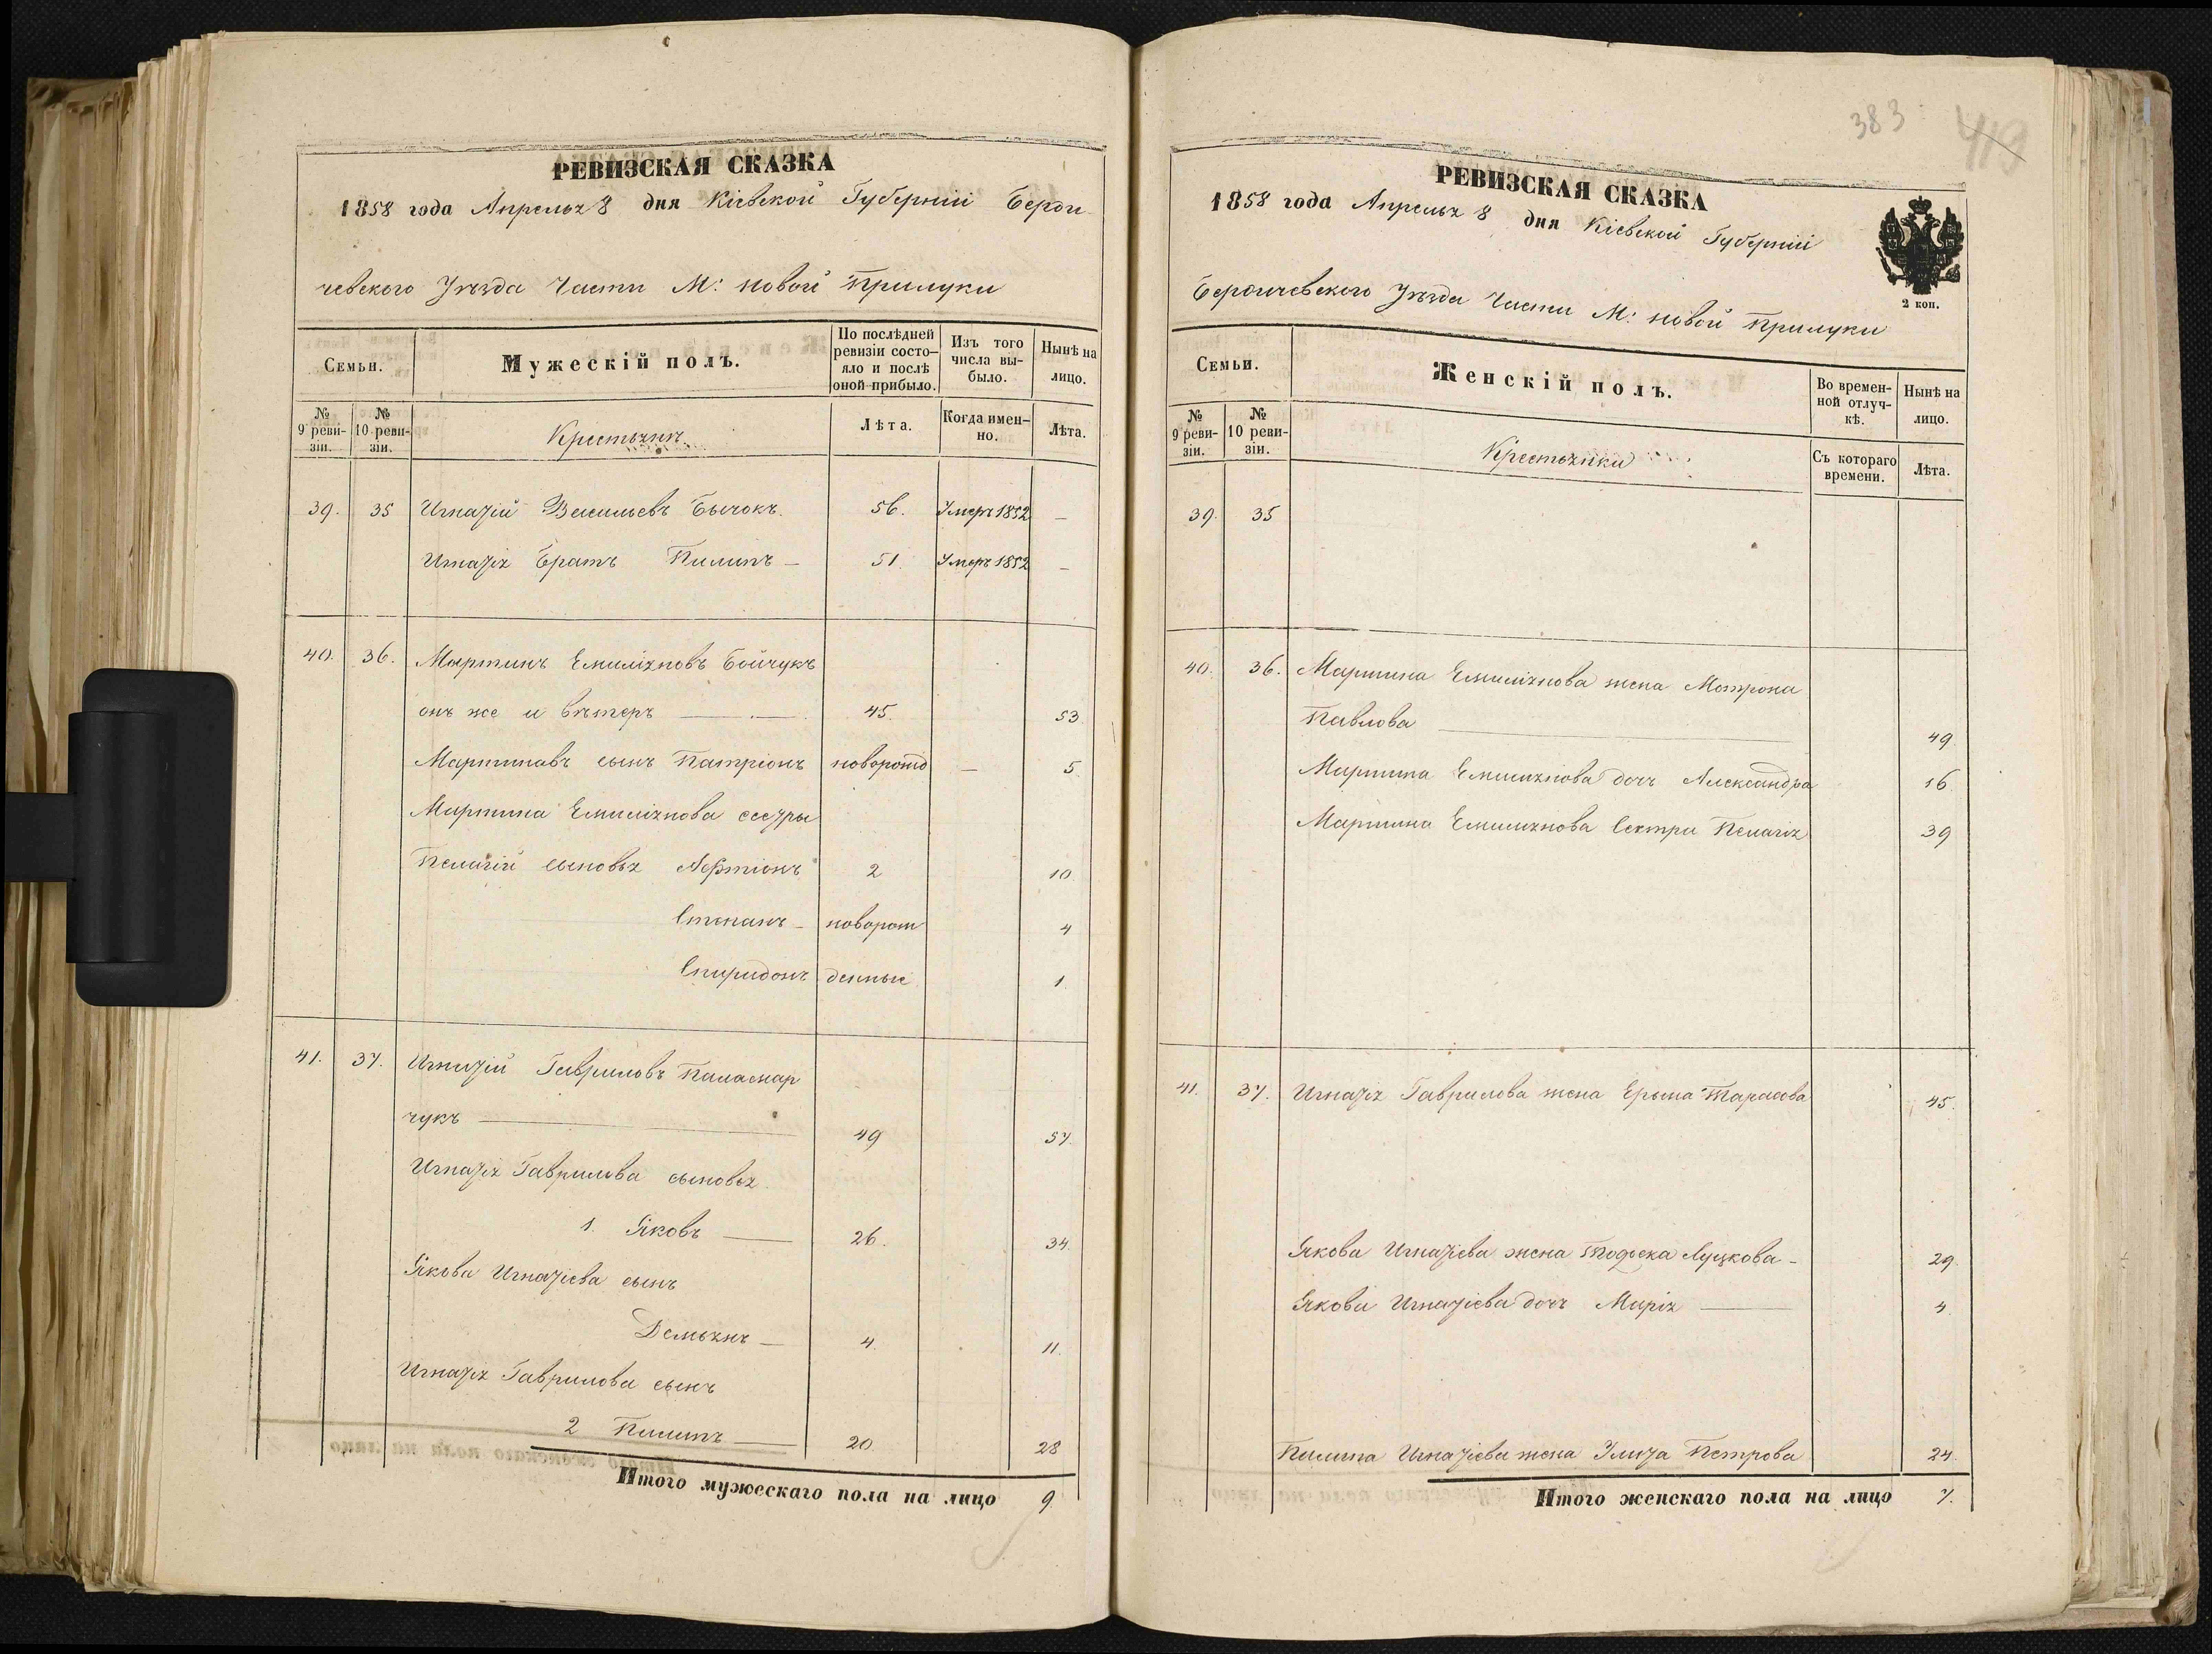 РЕВИЗСКАЯ СКАЗКА
1858 года Апреля 8 дня Кіевской Губерніи Берди
чевского Уѣзда Части М: новой Прилуки
Семьи.
Мужескій полъ.
По послѣдней ревизіи состо-яло и послѣ оной прибыло.
Изъ того числа вы-было.
Нынѣ на лицо.
№ 9 реви-зіи.
№ 10 реви-зіи.
Крестьянъ
Лѣта.
Когда имен-но.
Лѣта.
39. 35 Игнатій Васильевъ Бычокъ. 56. Умеръ 1852 —
Игнатія братъ Пилипъ — 51. Умеръ 1852 —
40. 36. Мартинъ Емиліяновъ Бойчукъ
онъ же и вѣтеръ — 45. 53
Мартиновъ сынъ Патріонъ новорожд — 5
Мартина Емиліянова сестры
Пелагіи сыновья 2 10
Степанъ — 4
Спиридонъ денные 1
41. 37. Игнатій Гавриловъ Паламар
чукъ — 49 57.
Игнатія Гаврилова сыновья
1. Яковъ — 26. 34.
Якова Игнатіева сынъ
Демьянъ — 4. 11.
Игнатія Гаврилова сынъ
2 Пилипъ — 20. 28
Итого мужескаго пола на лицо 9.
383 419
РЕВИЗСКАЯ СКАЗКА
1858 года Апреля 8 дня Кіевской Губерніи
Бердичевского Уѣзда Части М: новой Прилуки
2 коп.
Семьи.
Женскій полъ.
Во времен-ной отлуч-кѣ.
Нынѣ на лицо.
№ 9 реви-зіи.
№ 10 реви-зіи.
Крестьянки
Съ котораго времени.
Лѣта.
39. 35
40. 36. Мартина Емиліянова жена Мотрона
Павлова — 49
Мартина Емилиянова дочь Александра 16
Мартина Емилиянова Сестра Пелагія 39
41. 37. Игнатія Гаврилова жена Ерына Тарасова 45.
Якова Игнатіева жена Тодоска Луцкова — 29
Якова Игнатіева дочь Марія — 4
Пилипа Игнатіева жена Петрова 24.
Итого женскаго пола на лицо 7.